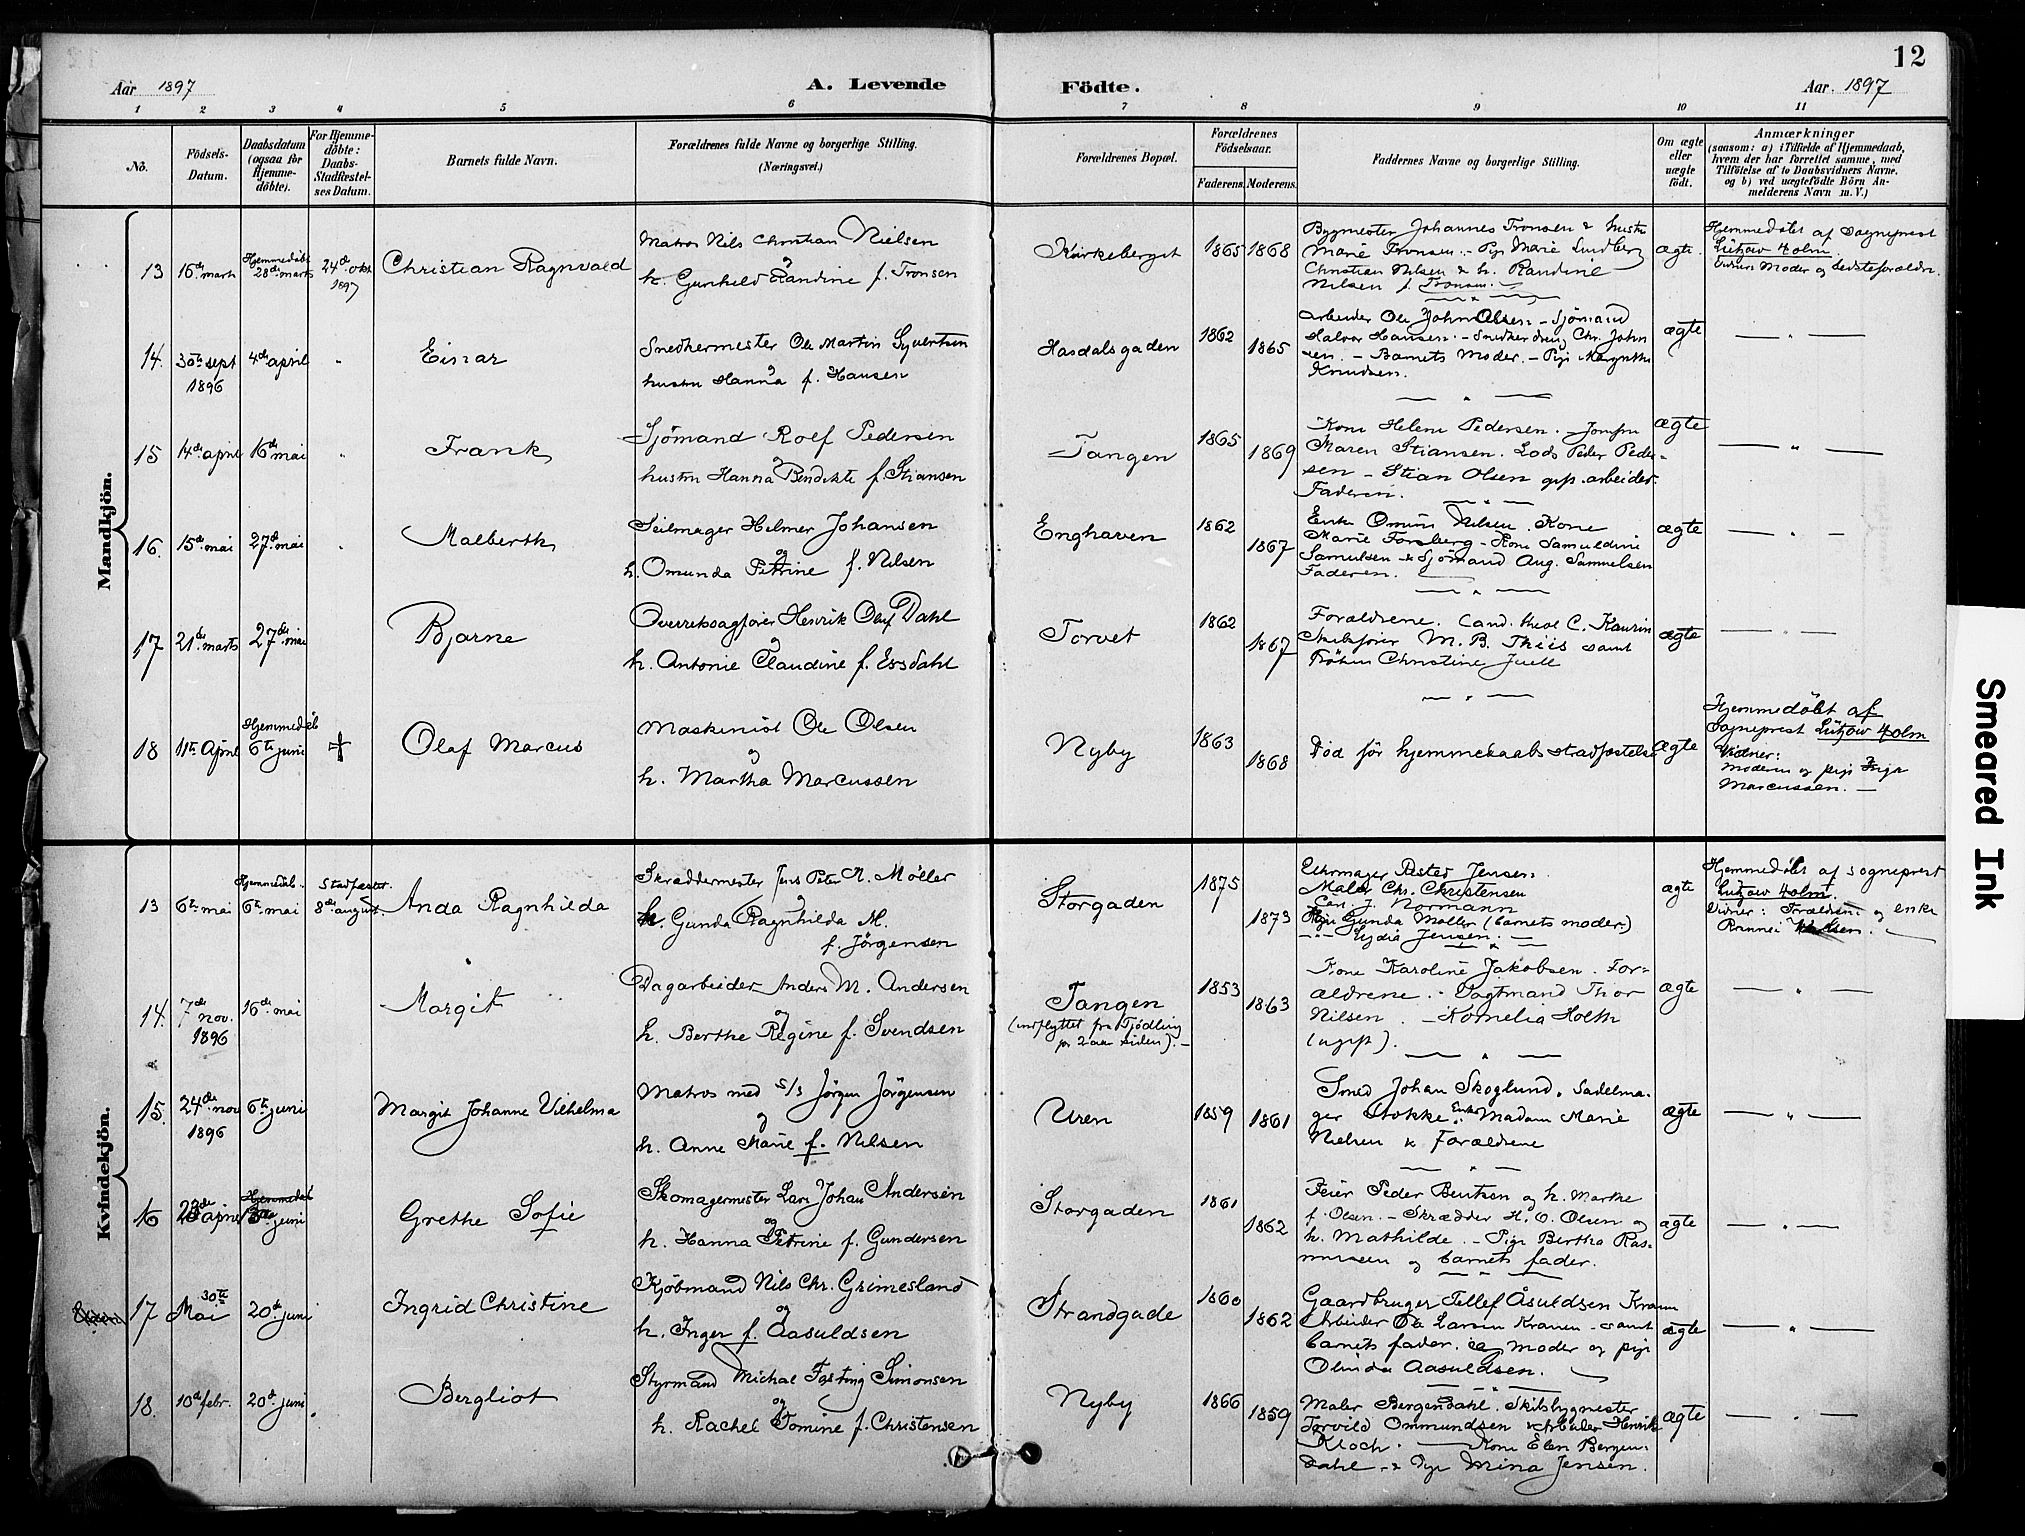 12
Aar 1897
A. Levende
Födte.
Aar. 1897
1 2 3 4 5 6 7 8 9 10 11
No.
Födsels-
Datum.
Daabsdatum
(ogsaa for
Hjemme-
döbte).
For Hjemme-
döbte:
Daabs-
Stadfæstel-
ses Datum.
Barnets fulde Navn.
Forældrenes fulde Navne og borgerlige Stilling.
(Næringsvei.)
Forældrenes Bopæl.
Forældrenes
Födselsaar.
Faderens. Moderens.
Faddernes Navne og borgerlige Stilling.
Om ægte
eller
uægte
födt.
Anmærkninger
(saasom: a) i Tilfælde af Hjemmedaab,
hvem der har forrettet samme, med
Tilföielse af to Daabsvidners Navne,
og b) ved uægtefödte Börn An-
melderens Navn m. V.)
Mandkjön.
13
16de marts
Hjemmedöbt
28de marts
24de okt
1897
Christian Ragnvald
Matros Nils Christian Nielsen
og
h. Gunhild Randine f. Tronsen
Kirkeberget
1865 1868
Bygmester Johannes Tronsen & hustr
Marie Tronsen. - Pige Marie Lindberg
Christian Nilsen & h. Randine
Nilsen f. Tronsen.
ægte.
Hjemmedöbt af Sogneprest
Lützow Holm.
Vidner: Moder og bedsteforældre.
14.
30te sept
1896
4de april
Einar
Snedkermester Ole Martin Syvertsen
og
hustru Hanna f. Hansen
Hasdalsgaden
1862
1865
Arbeider Ole John Olsen. - Sjömand
Halvor Hansen. - Snedkerdreng Chr. John
sen. - Barnets Moder. - Pige Margrethe
Knudsen.
ægte
15
14de april
16de mai
Frank
Sjömand Rolf Pedersen
og
hustru Hanna Bendikte f. Stiansen
Tangen
1865
1869
Kone Helene Pedersen. Jomfru
Maren Stiansen. Lods Peder Peder-
sen - Stian Olsen gift arbeider
Faderen.
ægte
16.
15de mai
27de mai
Malberth
Seilmager Helmer Johansen
og
h. Omunda Petrine f. Nilsen
Enghaven
1862
1867
Enke Omine Nilsen. Kone
Marie Forsberg - Kone Samueldine
Samulsen & Sjömand Aug. Sammelsen
Faderen.
ægte
17
21de marts
27de mai
Bjarne
Overretssagförer Henrik Oluf Dahl
og
h. Antonie Claudine f. Essdahl
Torvet
1862
1867
Forældrene. Cand. theol C. Kaurin
Skibsförer M. B. Thiis samt
Fröken Christine Juell
ægte
18
11te April
Hjemmedöb
6te juni
+
Olaf Marcus
Maskinist Ole Olsen
og
h. Martha Marcussen
Nyby
1863
1868
Död för hjemmedaabs stadfæstelse
ægte
Hjemmedöbt af
Sogneprest Lützow Holm
Vidner:
Moderen og pige Inga
Marcussen.
Kvindekjön.
13
6te mai
Hjemmedöb.
6te mai
Stadfæstet.
8de august.
Anda Ragnhilda
Skræddermester Jens Peter A. Möller
og
h. Gunda Ragnhilda M.
f. Jörgensen
Storgaden
1875
1873
Uhrmager Peter Jensen.
Maler Chr. Christensen
Carl J. Normann
Pige Gunda Möller (barnets moder.)
Lydia Jensen.
ægte
Hjemmedöbt af sogneprest
Lützow Holm.
Vidner: Forældrene og enke
14.
7de
nov.
1896
16de mai
Margit
Dagarbeider Anders M. Andersen
og
h. Berthe Regine f. Svendsen
Tangen
(indflyttet fra Tjödling
for 2 aar siden). -
1853
1863
Kone Karoline Jakobsen. For-
ældrene. - Vagtmand Thor
Nilsen. - Kornelia Holth
(ugift).
ægte
15.
24de nov
1896
6te juni
Margit Johanne Vilhelma
Matros med S/S Jörgen Jörgensen
og
h. Anne Marie f. Nilsen
Uren
1859 1861
Smed Johan Skoglund. Sadelma-
ger Stokke. Enke Madam Marie
Nielsen & Forældrene
ægte
16
23de april
Hjemmedöbt
juni
Grethe Sofie
Skomagermester Lars Johan Andersen
og
h. Hanna Petrine f. Gundersen
Storgaden
1861
1862
Feier Peder Bentsen og h. Marthe
f. Olsen. - Skrædder H. O. Olsen og
h. Mathilde. - Pige Bertha Ras-
mussen og barnets fader.
ægte
17
30te
Mai
20de juni
Ingrid Christine
Kjöbmand Nils Chr. Grimesland
og
h. Inger f. Aasuldsen
Strandgade
1860
1862
Gaardbruger Tellef Åsuldsen Kranen
Arbeider Ole Larsen Kranen - samt
barnets fader og moder og pige
Olinda Aasuldsen.
ægte
18.
10de febr.
20de juni
Bergliot
Styrmand Michal Fasting Simonsen
og
h. Rachel Tomine f. Christensen
Nyby
1866
1859
Maler Bergendahl. Skibsbygmester
Torvild Ommundsen & Arbeider Henrik
Kloch. Kone Elen Bergen-
dahl - & Pige Mina Jensen.
ægte
Smeared Ink